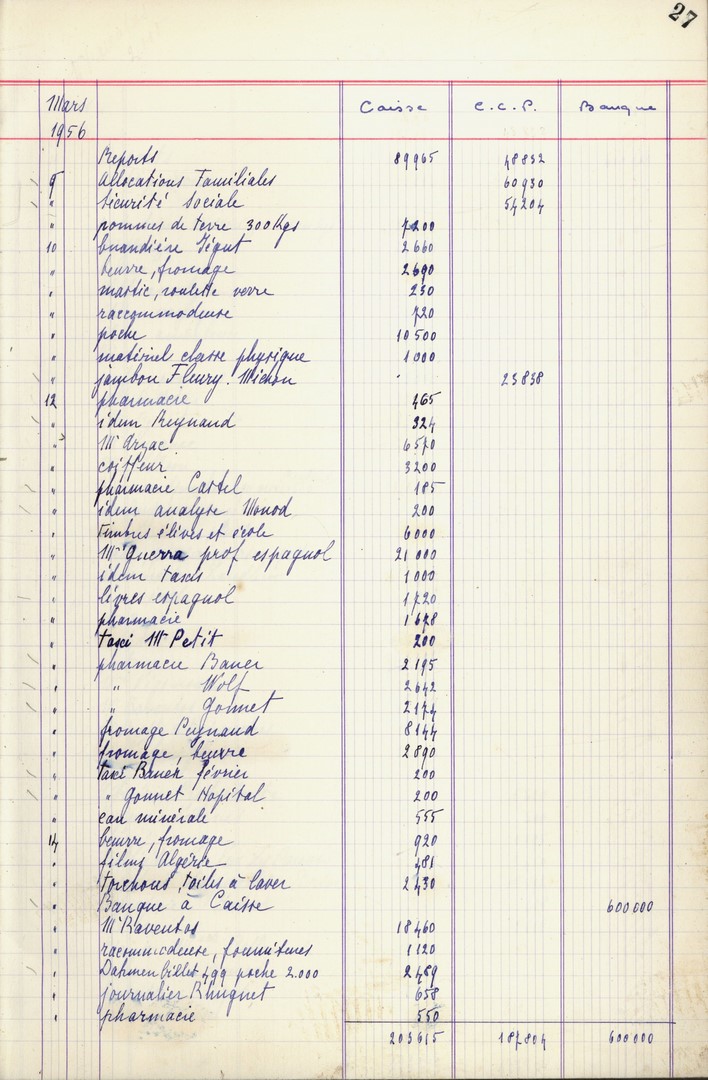 27
Mars Caisse C.C.P. Banque
1956
Reports 89965 48832
9 Allocations Familiales 60930
" Sécurité Sociale 54204
" pommes de terre 300Kgs 7200
10 buandière Ségut 2660
" beurre, fromage 2690
" mastic, roulette verre 230
" raccommodeuse 720
" poche 10500
" matériel classe physique 1000
" jambon Fleury-Michon 23838
12 pharmacie 465
" idem Reynaud 324
" Mr Arzac 6570
" coiffeur 3200
" pharmacie Castel 185
" idem analyse Monod 200
" Timbres élèves et école 6000
" Mr Guerra prof espagnol 21000
" idem taxis 1000
" livres espagnol 1720
" pharmacie 1678
" taxi Mr Petit 200
" pharmacie Bauer 2195
" " Wolf 2642
" " Gonnet 2174
" fromage Peynaud 8144
" fromage, beurre 2890
" taxi Bauer février 200
" " Gonnet Hopital 200
" eau minérale 555
14 beurre, fromage 920
" films Algérie 481
" torchons, toiles à laver 2430
" Banque à Caisse 600000
" Mr Raventos 18460
" racommodeuse, fournitures 1120
" Dahmen billet 499 poche 2.000 2489
" journalier Rhuguet 658
" pharmacie 550
203615 187804 600000